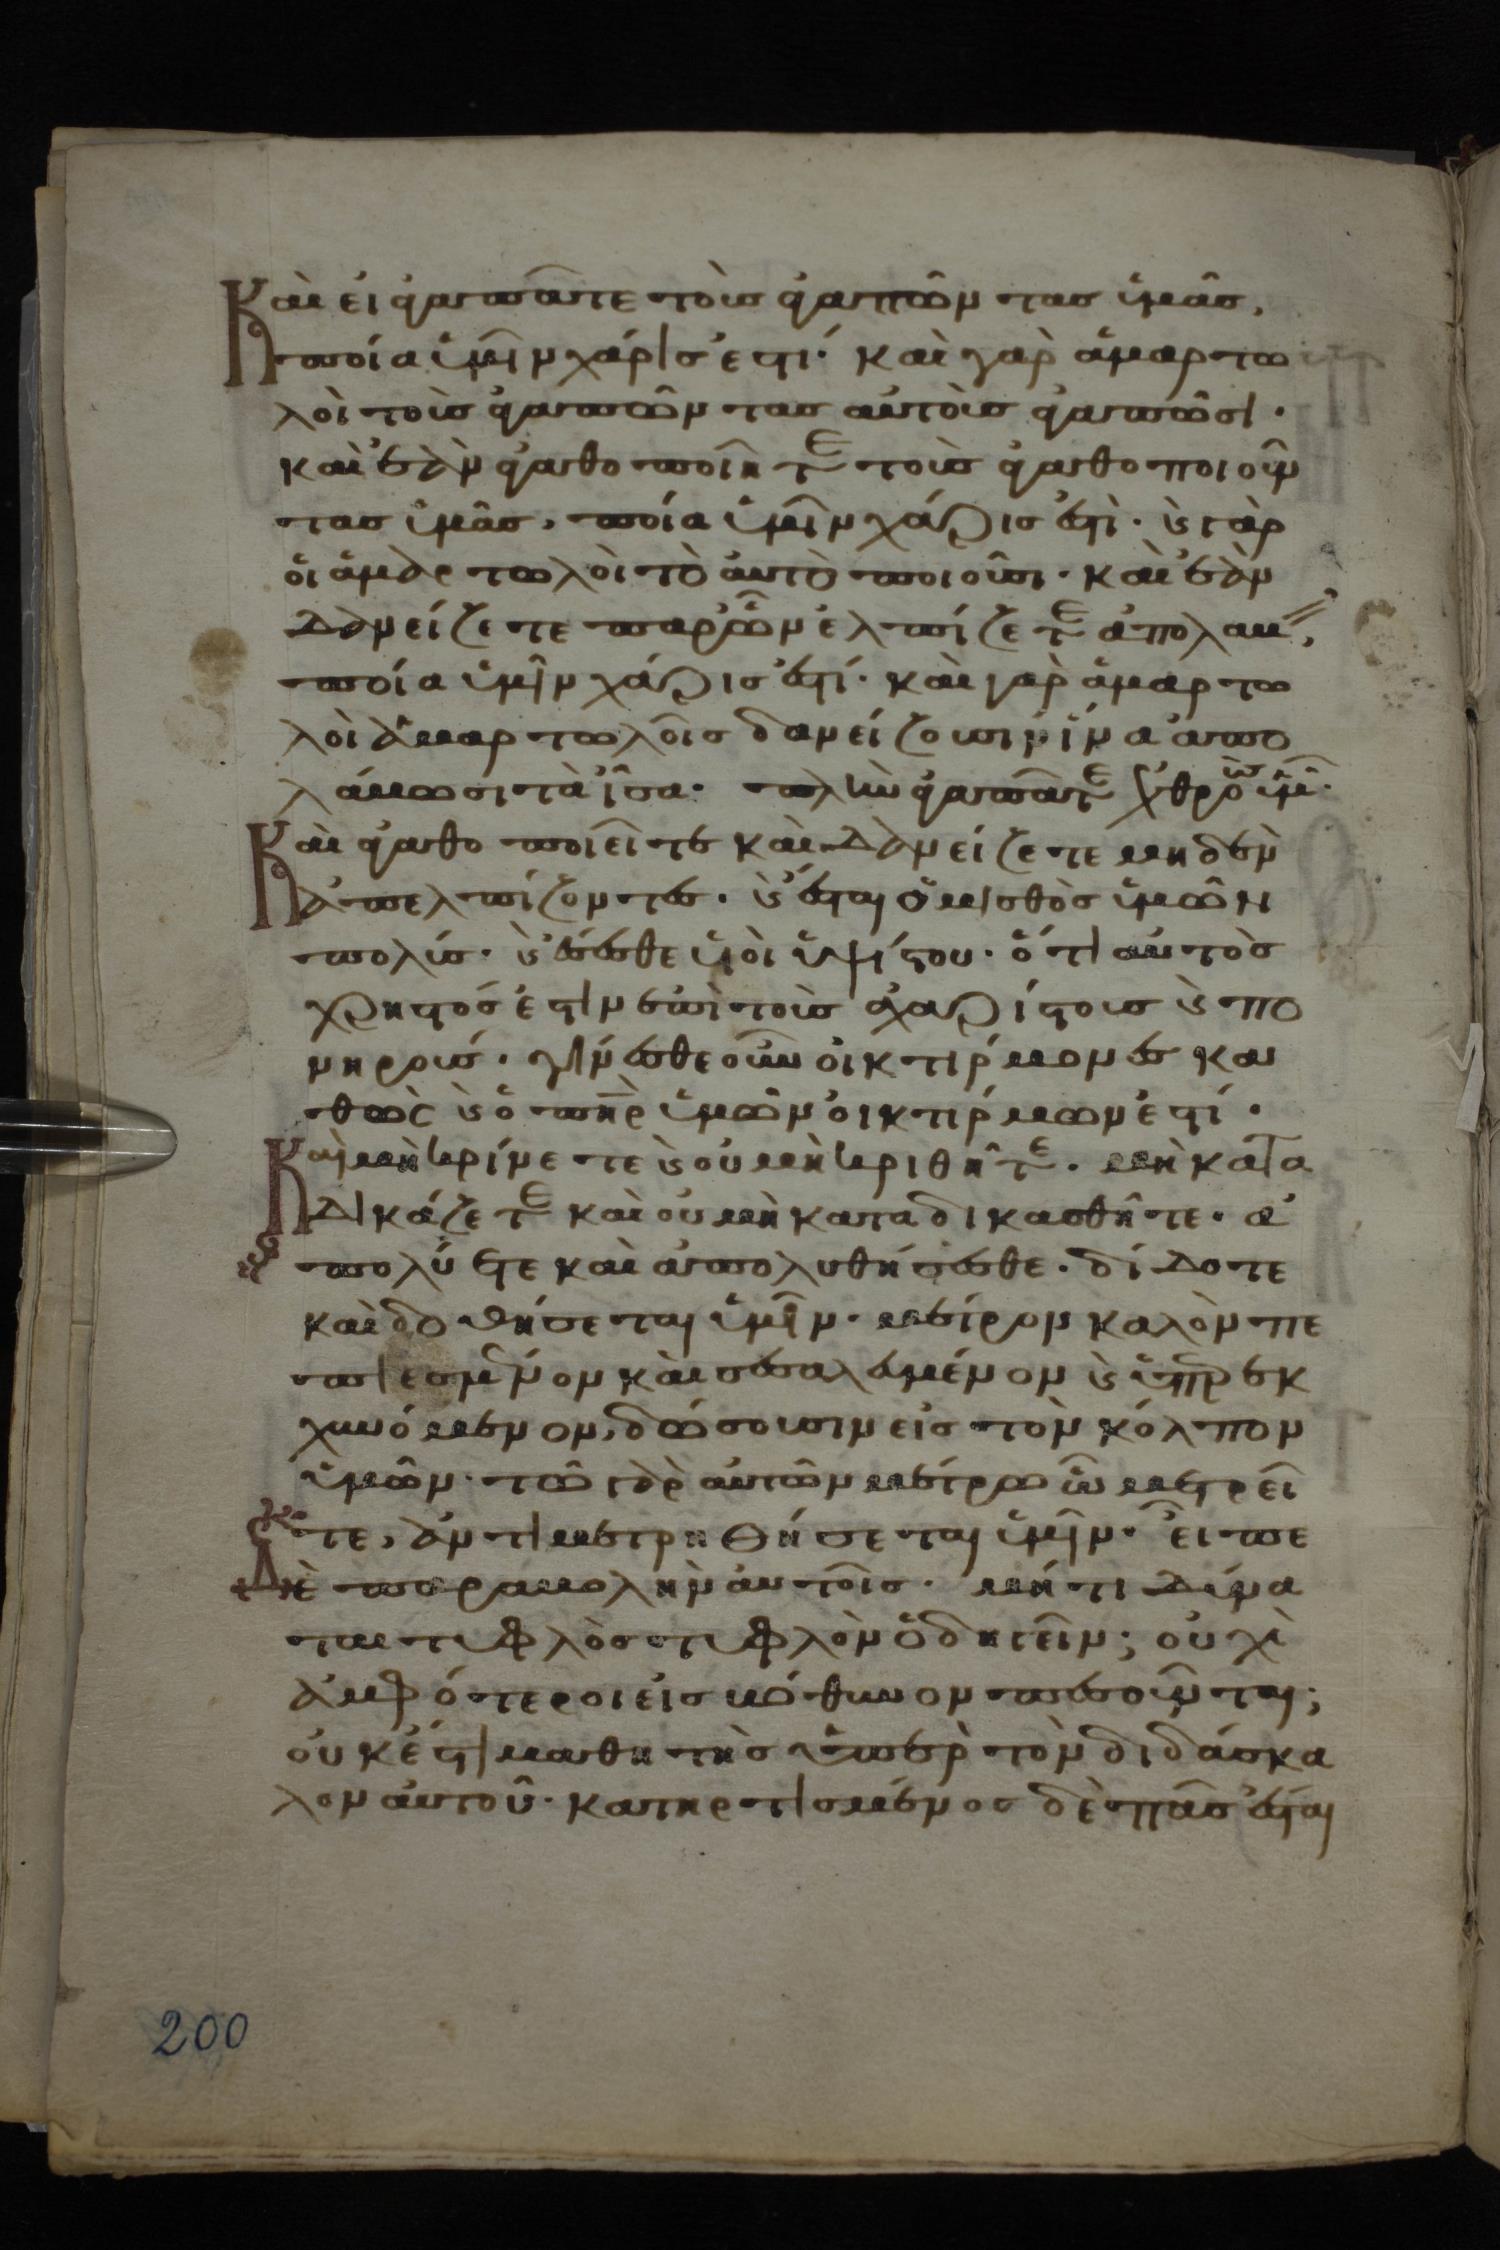 Καὶ εἰ ἀγαπᾶτε τοὺς ἀγαπῶντας ὑμᾶς,
ποία ὑμῖν χάρις ἐστί· καὶ γὰρ ἁμαρτω
λοὶ τοὺς ἀγαπῶντας αὐτοὺς ἀγαπῶσι·
καὶ ἐὰν ἀγαθοποιῆτε τοὺς ἀγαθοποιοῦν
τας ὑμᾶς, ποία ὑμῖν χάρις ἐστὶ· ϗ γὰρ
οἱ ἁμαρτωλοὶ τὸ αὐτὸ ποιοῦσι· καὶ ἐὰν
δανείζετε παρ' ὧν ἐλπίζετε ἀπολαβ
ποία ὑμῖν χάρις ἐστί· καὶ γὰρ ἁμαρτω
λοὶ ἁμαρτωλοῖς δανείζουσιν ἵνα ἀπο
λάβωσι τὰ ἴσα· πλὴν ἀγαπᾶτε ἐχθροὺς ὑμ·
Καὶ ἀγαθοποιεῖτε καὶ δανείζετε μηδὲν
ἀπελπίζοντες· ϗ ἔσται ὁ μισθὸς ὑμῶν
πολύς· ϗ ἔσεσθε υἱοὶ ὑψίστου· ὅτι αὐτὸς
χρηστός ἐστιν ἐπὶ τοὺς ἀχαρίστους ϗ πο
νηρούς· γίνεσθε οὖν οἰκτίρμονες κα
θὼς ϗ ὁ πηρ ὑμῶν οἰκτίρμων ἐστί·
Καὶ μὴ κρίνετε ϗ οὐ μὴ κριθῆτε· μὴ κατα
δικάζετε καὶ οὐ μὴ καταδικασθῆτε· ἀ
πολύετε καὶ ἀπολυθήσεσθε· δίδοτε
καὶ δοθήσεται ὑμῖν· μέτρον καλὸν πε
πιεσμένον καὶ σεσαλευμένον ϗ ὑπερεκ
χυνόμενον, δώσουσιν εἰς τὸν κόλπον
ὑμῶν· τῶ γὰρ αὐτῶν μέτρω ὧ μετρεῖ
τε, ἀντιμετρηθήσεται ὑμῖν· εἶπε
Δὲ παραβολὴν αὐτοῖς· μήτι δύνα
ται τυφλὸς τυφλὸν ὁδηγεῖν; οὐχὶ
ἀμφότεροι εἰς βόθυνον πεσοῦνται;
οὐκ ἔστι μαθητὴς ὑπὲρ τὸν διδάσκα
λον αὐτοῦ· κατηρτισμένος δὲ πᾶς ἔσται
200